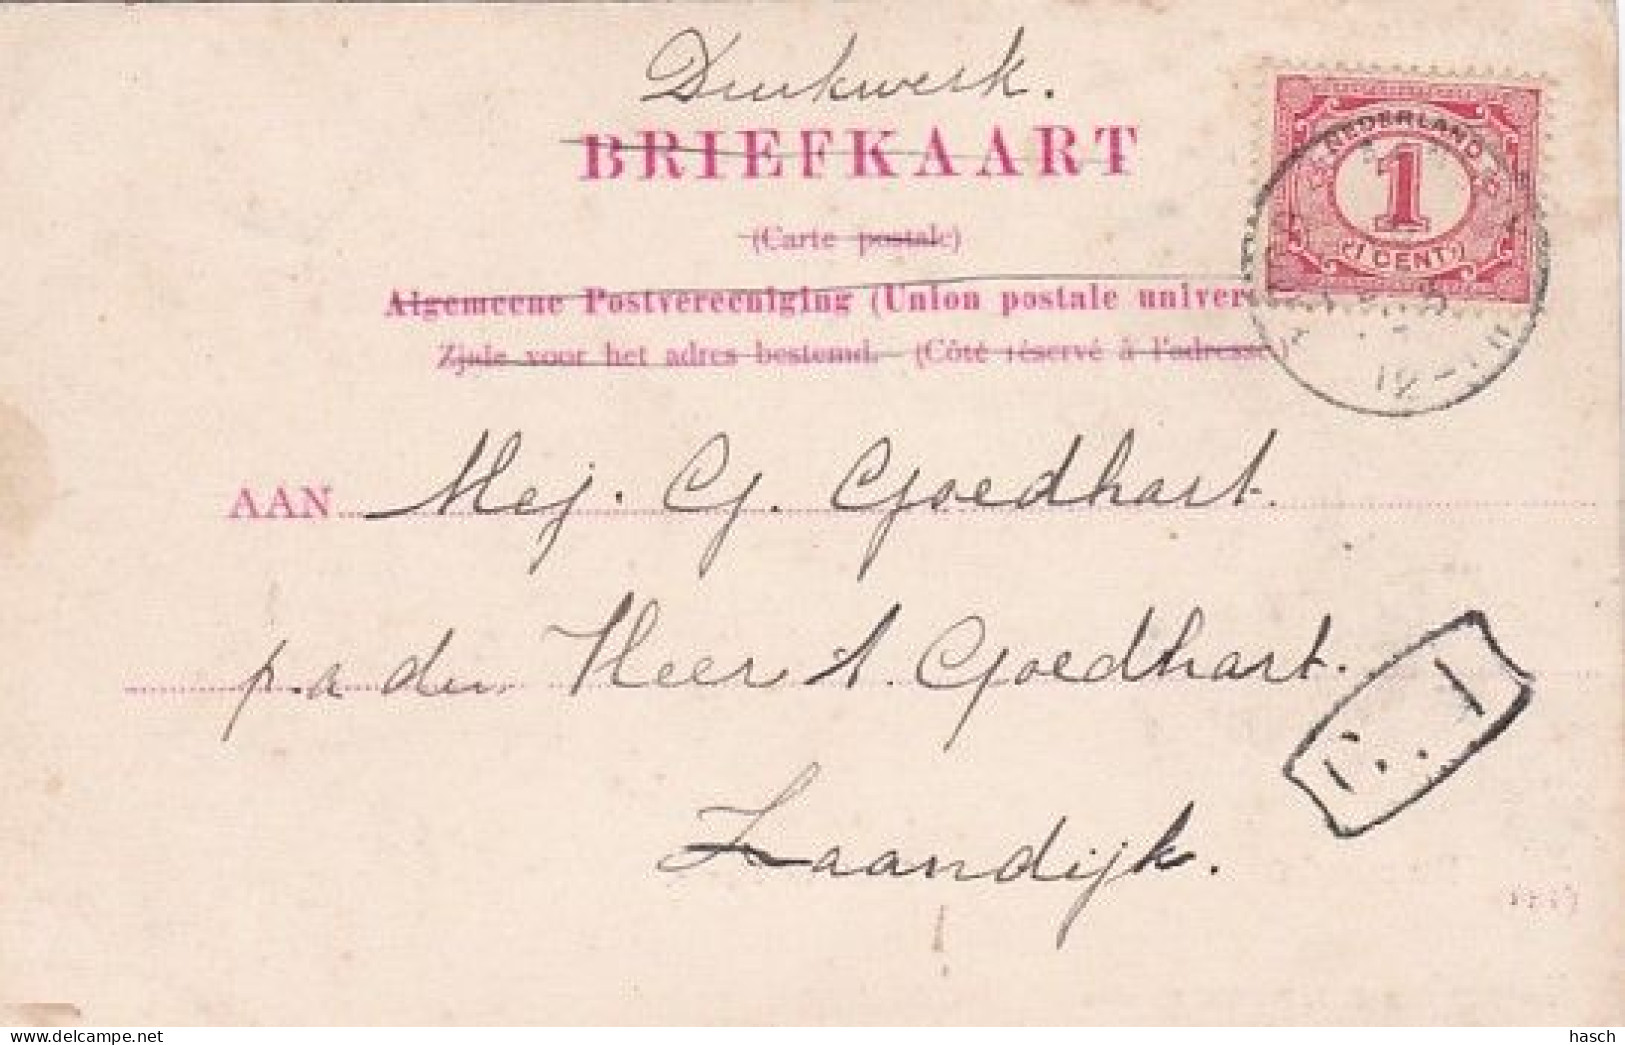 Drukwerk.
BRIEFKAART
(Carte postale)
Algemeene Postvereeniging (Union postale univer
Zijde voor het adres bestemd. (Côté réservé à l'adresse)
NEDERLAND
1
(1 CENT)
10-11
AAN Mej. G. Goedhart.
p.a den Heer A. Goedhart.
Zaandijk.
delcampe.net
hasch